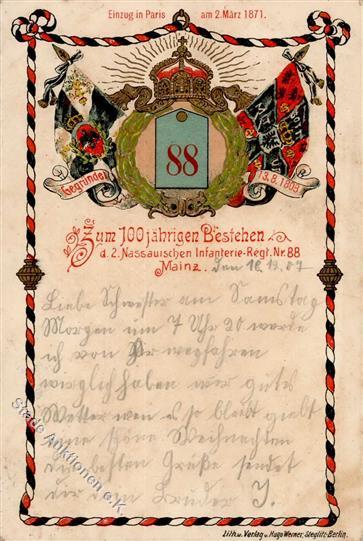 Einzug in Paris am 2. März 1871.
88
Gegründet 13.8.1808
Zum 100 jährigen Bestehen
d. 2. Nassauischen Infanterie-Regt. Nr. 88
Mainz. Den 16.12.07
Liebe Schwester am Samstag
Morgen um 7 Uhr 20 werde
ich von hir wegfahren
haben wir gutes
Wetter wen es so bleibt giebt
eine schöne Weihnachten
die besten Grüße sendet
dir dein Bruder J.
Stade Auktionen e.K
Lith. u. Verlag v. Hugo Werner, Steglitz-Berlin.